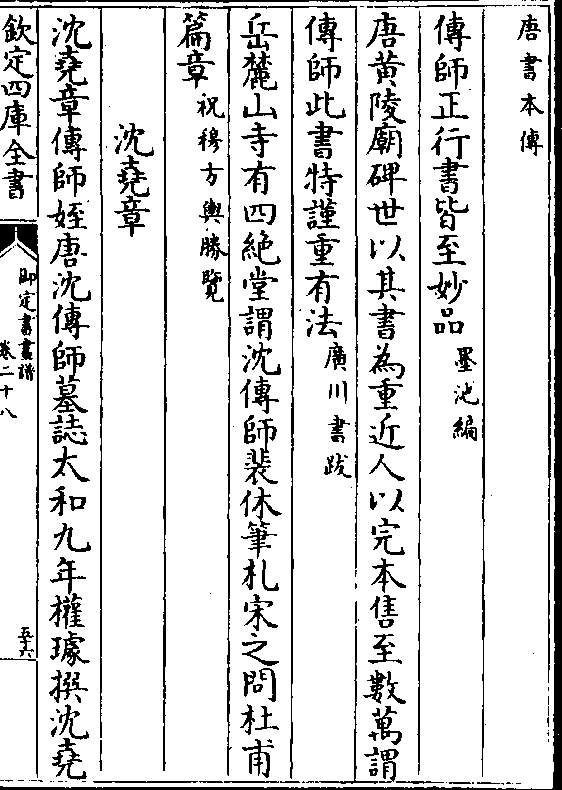 唐書本傳
傳師正行書皆至妙品墨池編
唐黄陵廟碑世以其書為重近人以完本售至數萬謂
傳師此書特謹重有法廣川書跋
岳麓山寺有四絶堂謂沈傳師裴休筆札宋之問杜甫
篇章祝穆方輿勝覽
沈堯章
沈堯章傳師姪唐沈傳師墓誌太和九年權璩撰沈堯
欽定四庫全書
御定書畫譜
卷二十八
五六